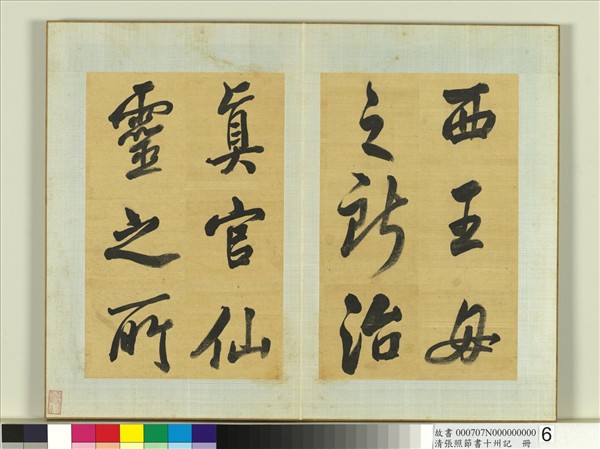 西王母
之所治
真官仙
靈之所
故書 000707N000000000
清張照節書十州記 冊
6